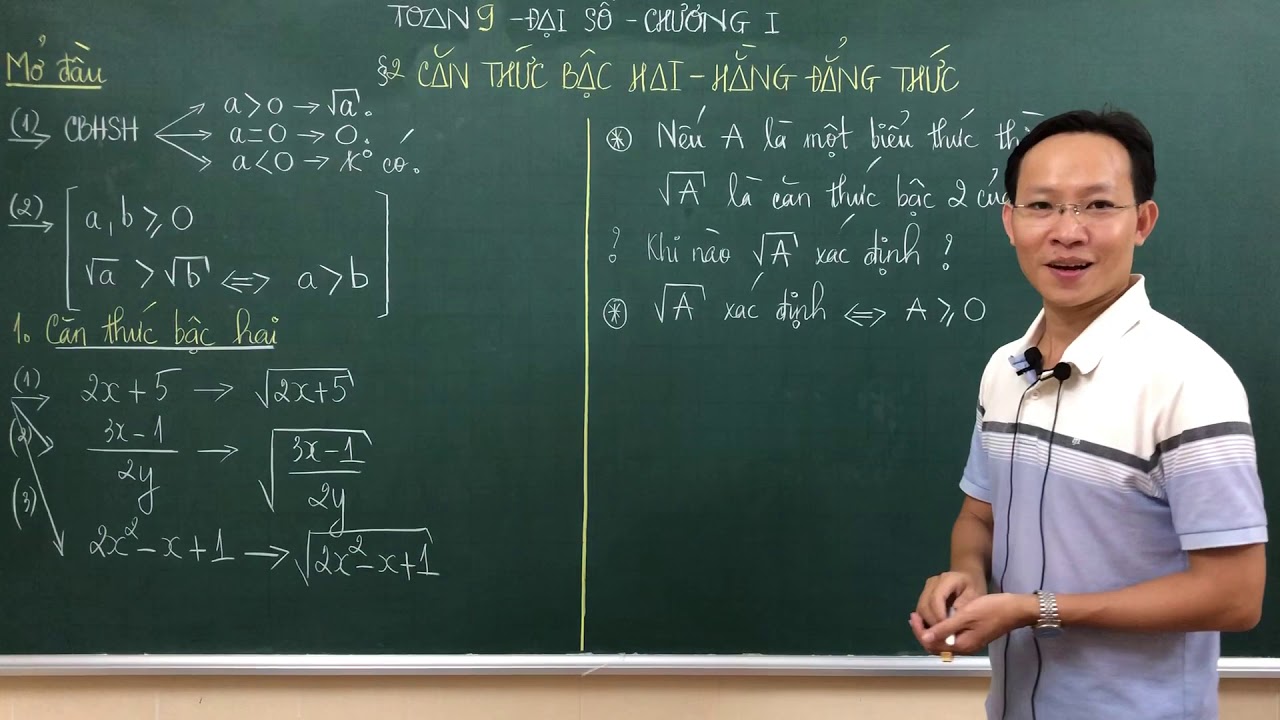 TOÁN 9 - ĐẠI SỐ - CHƯƠNG I
§2 CĂN THỨC BẬC HAI - HẰNG ĐẲNG THỨC
Mở đầu
(1) CBHSH
a > 0 → √a.
a = 0 → 0.
a < 0 → K° có.
(2) a, b ⩾ 0
√a > √b ⇔ a > b
1. Căn thức bậc hai
(1) 2x + 5 → √(2x+5)
(2) (3x-1)/(2y) → √((3x-1)/(2y))
(3) 2x² - x + 1 → √(2x² - x + 1)
⊛ Nếu A là một biểu thức
√A là căn thức bậc 2
? Khi nào √A xác định ?
⊛ √A xác định ⇔ A ⩾ 0